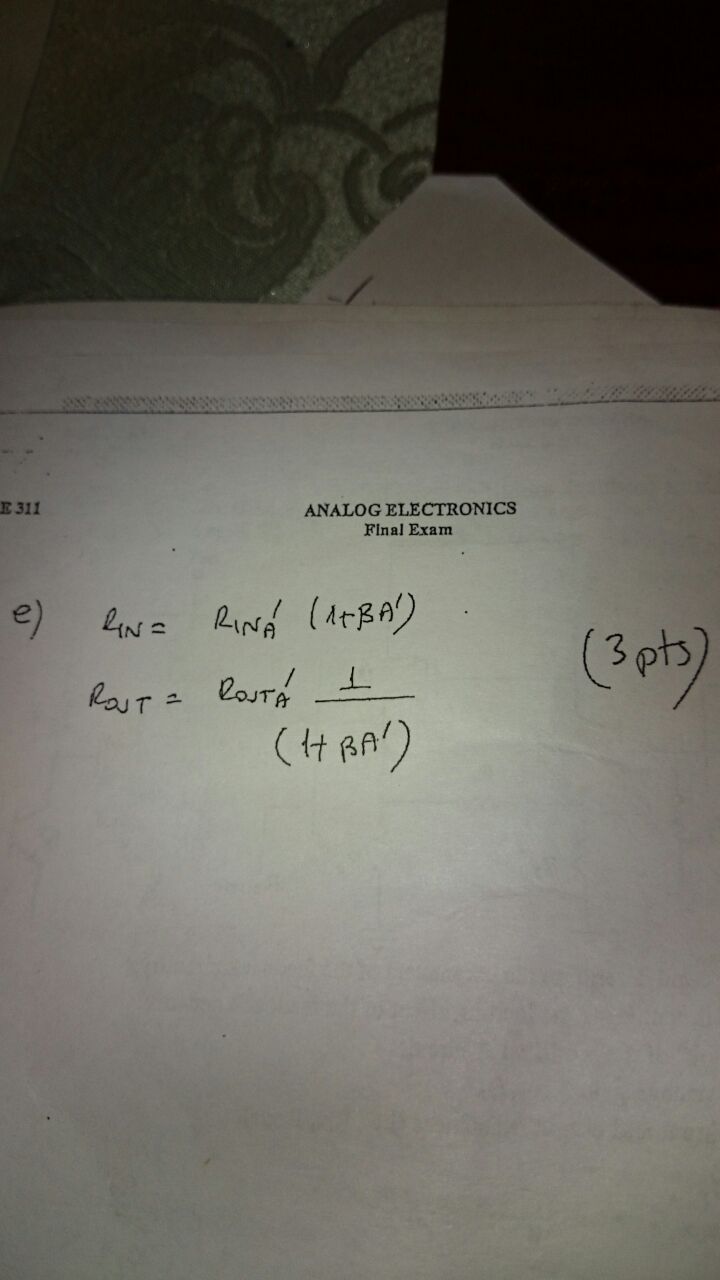 E 311
ANALOG ELECTRONICS
Final Exam
e) RIN = RINA' (1+βA')
(3 pts)
ROUT = ROUTA' 1
(1+ βA')